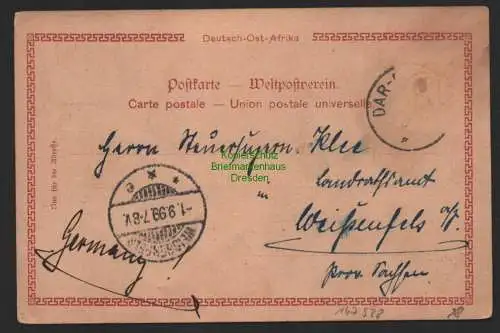 Deutsch-Ost-Afrika
Postkarte — Weltpostverein.
Carte postale — Union postale universelle
DAR-
Nur für die Adresse.
Herrn Steuersupern. Klee
Kopierschutz
Briefmarkenhaus
Dresden
in
Landrathsamt
-1.9.99.7-8V.
Weißenfels a/S.
Germany!
Prov. Sachsen